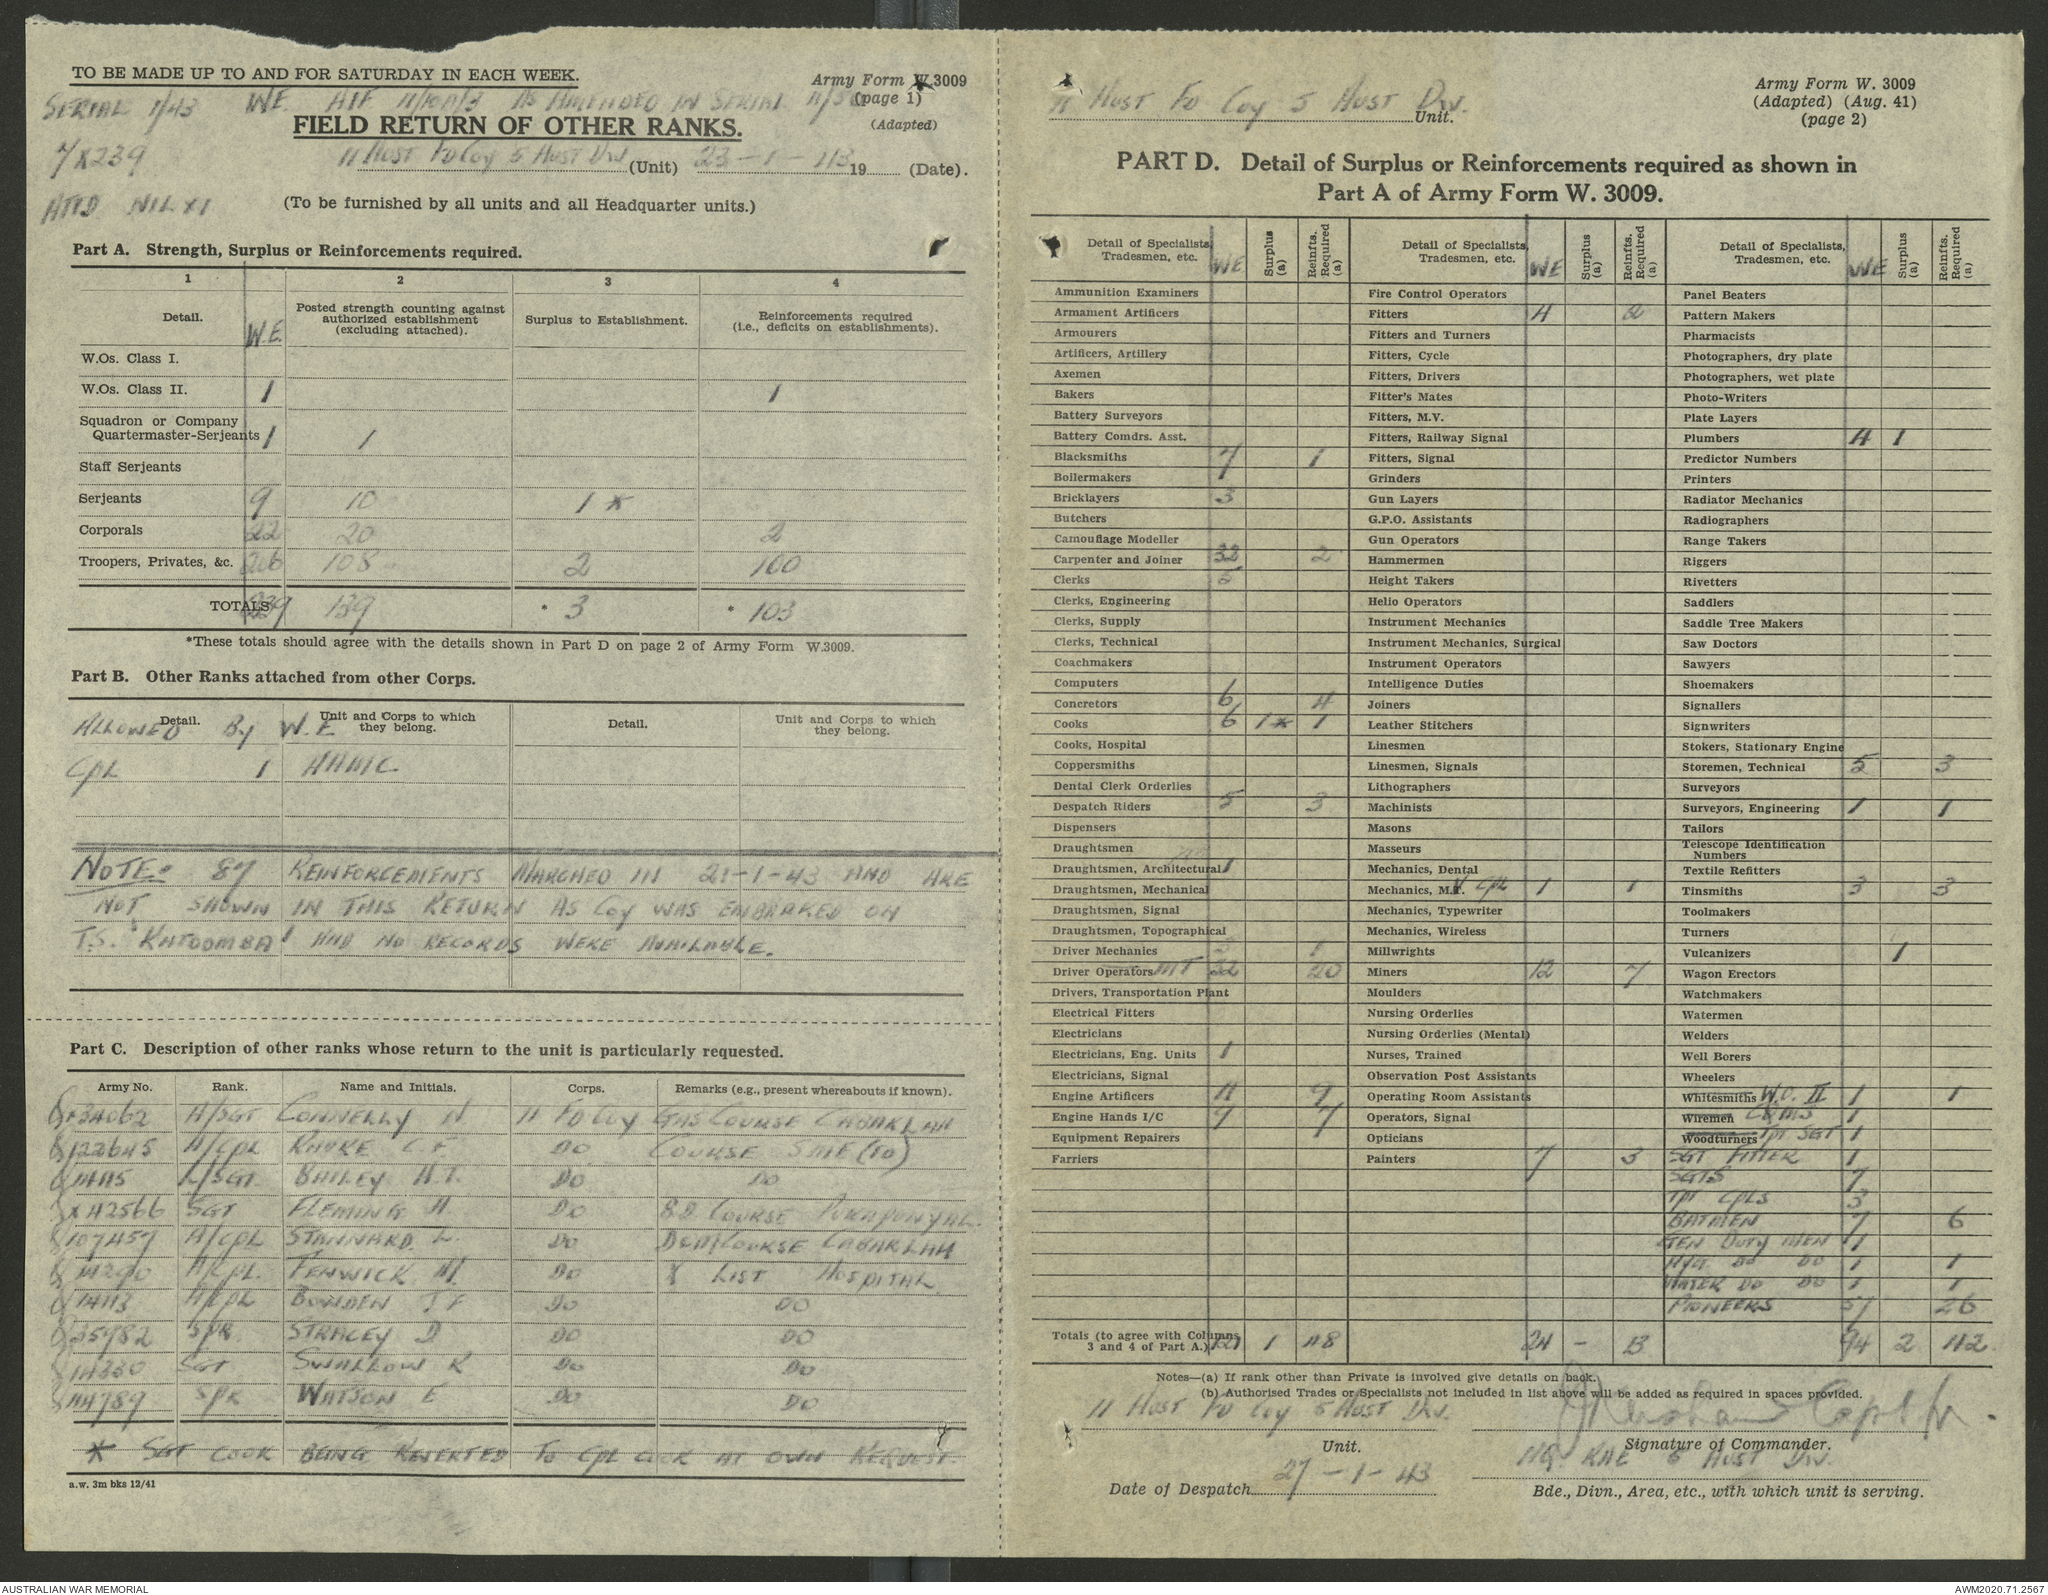 TO BE MADE UP TO AND FOR SATURDAY IN EACH WEEK.
Army Form W.3009
(page 1)
(Adapted)
SERIAL 1/43 WE. AIF AS AMENDED IN SERIAL
FIELD RETURN OF OTHER RANKS.
11 AUST FD COY 5 AUST DIV (Unit) 23-1-43 19 (Date).
(To be furnished by all units and all Headquarter units.)
Part A. Strength, Surplus or Reinforcements required.
1 2 3 4
Detail. W.E. Posted strength counting against authorized establishment (excluding attached). Surplus to Establishment. Reinforcements required (i.e., deficits on establishments).
W.Os. Class I.
W.Os. Class II. 1 1
Squadron or Company
Quartermaster-Serjeants 1 1
Staff Serjeants
Serjeants 9 10 1 *
Corporals 22 20 2
Troopers, Privates, &c. 206 108 2 100
TOTALS 239 139 * 3 * 103
*These totals should agree with the details shown in Part D on page 2 of Army Form W.3009.
Part B. Other Ranks attached from other Corps.
Detail. Unit and Corps to which they belong. Detail. Unit and Corps to which they belong.
ALLOWED By W.E
CPL 1 AAMC
NOTE- 87 REINFORCEMENTS MARCHED IN 21-1-43 AND ARE
NOT SHOWN IN THIS RETURN AS COY WAS EMBARKED ON
T.S. 'KATOOMBA' AND NO RECORDS WERE AVAILABLE.
Part C. Description of other ranks whose return to the unit is particularly requested.
Army No. Rank. Name and Initials. Corps. Remarks (e.g., present whereabouts if known).
A/SGT CONNELLY 11 FD COY GAS COURSE CABARLAH
A/CPL C.F. DO COURSE SME (TO)
L/SGT BAILEY DO DO
SGT FLEMING A. DO COURSE PUCKAPUNYAL.
A/CPL STANNARD. L. DO COURSE CABARLAH
A/CPL. FENWICK DO X LIST HOSPITAL
A/CPL BOWDEN J F DO DO
SPR STRACEY D DO DO
SGT SWALLOW R DO DO
SPR WATSON E DO DO
* SGT COOK BEING REVERTED TO CPL COOK AT OWN REQUEST
a.w. 3m bks 12/41
11 AUST FD COY 5 AUST DIV. Unit.
Army Form W. 3009
(Adapted) (Aug. 41)
(page 2)
PART D. Detail of Surplus or Reinforcements required as shown in
Part A of Army Form W. 3009.
Detail of Specialists, Tradesmen, etc. WE Surplus (a) Reinfts. Required (a)
Ammunition Examiners
Armament Artificers
Armourers
Artificers, Artillery
Axemen
Bakers
Battery Surveyors
Battery Comdrs. Asst.
Blacksmiths 7 1
Boilermakers 1
Bricklayers 3
Butchers
Camouflage Modeller
Carpenter and Joiner 32 2
Clerks 5
Clerks, Engineering
Clerks, Supply
Clerks, Technical
Coachmakers
Computers 1
Concretors 6 4
Cooks 6 1* 1
Cooks, Hospital
Coppersmiths
Dental Clerk Orderlies
Despatch Riders 5 3
Dispensers
Draughtsmen
Draughtsmen, Architectural 1
Draughtsmen, Mechanical
Draughtsmen, Signal
Draughtsmen, Topographical
Driver Mechanics 1
Driver Operators MT 32 20
Drivers, Transportation Plant
Electrical Fitters
Electricians
Electricians, Eng. Units 1
Electricians, Signal
Engine Artificers 11 9
Engine Hands I/C 7 7
Equipment Repairers
Farriers
Detail of Specialists, Tradesmen, etc. WE Surplus (a) Reinfts. Required (a)
Fire Control Operators
Fitters 4 2
Fitters and Turners
Fitters, Cycle
Fitters, Drivers
Fitter's Mates
Fitters, M.V.
Fitters, Railway Signal
Fitters, Signal
Grinders
Gun Layers
G.P.O. Assistants
Gun Operators
Hammermen
Height Takers
Helio Operators
Instrument Mechanics
Instrument Mechanics, Surgical
Instrument Operators
Intelligence Duties
Joiners
Leather Stitchers
Linesmen
Linesmen, Signals
Lithographers
Machinists
Masons
Masseurs
Mechanics, Dental
Mechanics, M.V CPL 1 1
Mechanics, Typewriter
Mechanics, Wireless
Millwrights
Miners 12 7
Moulders
Nursing Orderlies
Nursing Orderlies (Mental)
Nurses, Trained
Observation Post Assistants
Operating Room Assistants
Operators, Signal
Opticians
Painters 7 3
Detail of Specialists, Tradesmen, etc. WE Surplus (a) Reinfts. Required (a)
Panel Beaters
Pattern Makers
Pharmacists
Photographers, dry plate
Photographers, wet plate
Photo-Writers
Plate Layers
Plumbers 4 1
Predictor Numbers
Printers
Radiator Mechanics
Radiographers
Range Takers
Riggers
Rivetters
Saddlers
Saddle Tree Makers
Saw Doctors
Sawyers
Shoemakers
Signallers
Signwriters
Stokers, Stationary Engine
Storemen, Technical 5 3
Surveyors
Surveyors, Engineering 1 1
Tailors
Telescope Identification Numbers
Textile Refitters
Tinsmiths 3 3
Toolmakers
Turners
Vulcanizers 1
Wagon Erectors
Watchmakers
Watermen
Welders
Well Borers
Wheelers
Whitesmiths W.O. II 1 1
Wiremen CQMS 1
Woodturners TPT SGT 1
SGT FITTER 1
SGTS 7
TPT CPLS 3
BATMEN 7 6
GEN DUTY MEN 1
HYG DO DO 1 1
WATER DO DO 1 1
PIONEERS 57 26
Totals (to agree with Columns 3 and 4 of Part A.) 121 1 48 24 - 13 94 2 42
Notes—(a) If rank other than Private is involved give details on back.
(b) Authorised Trades or Specialists not included in list above will be added as required in spaces provided.
11 AUST FD COY 5 AUST DIV.
Unit.
Capt
Signature of Commander.
HQ RAE 5 AUST DIV.
Date of Despatch 27-1-43
Bde., Divn., Area, etc., with which unit is serving.
AUSTRALIAN WAR MEMORIAL
AWM2020.71.2567